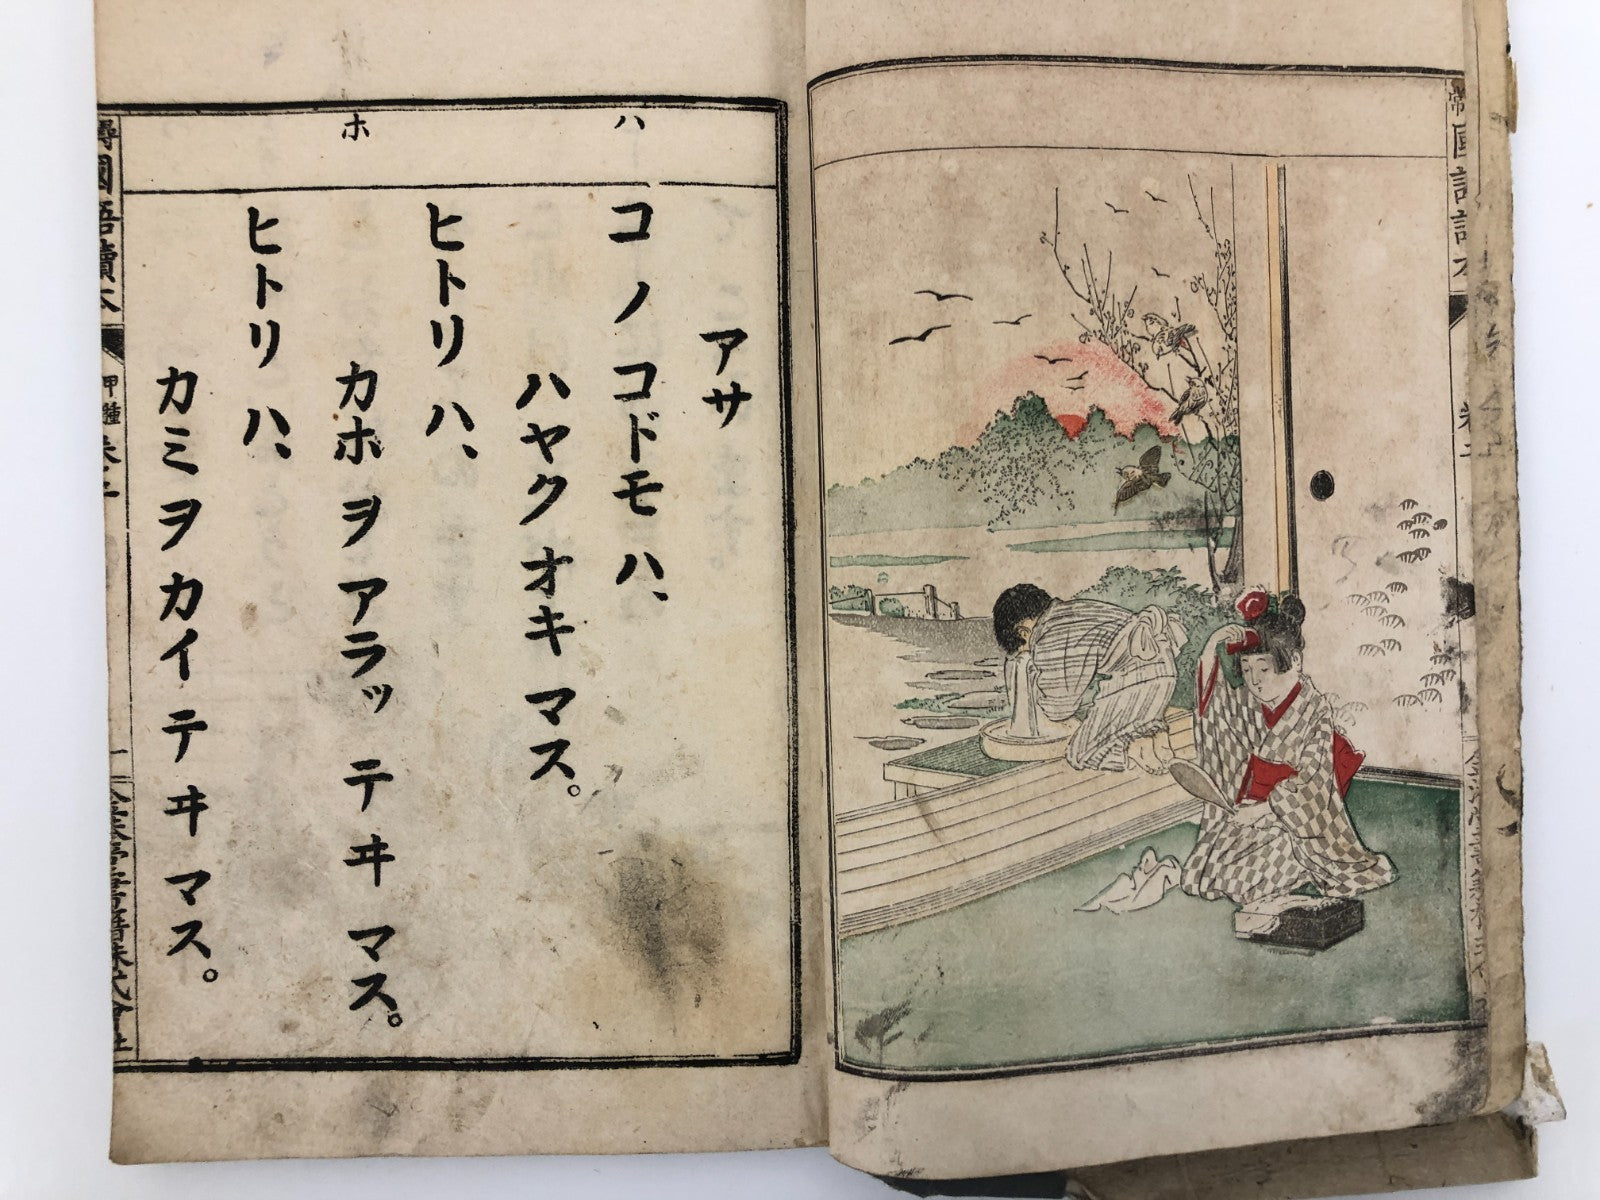 ハ
ホ
アサ
コノ コドモ ハ、
ハヤク オキ マス。
ヒトリ ハ、
カホ ヲ アラッ テヰ マス。
ヒトリ ハ、
カミ ヲ カイ テ ヰ マス。
國語讀本
甲種